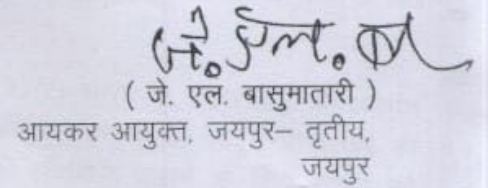 जे. एल. बा
( जे. एल. बासुमातारी )
आयकर आयुक्त, जयपुर– तृतीय,
जयपुर